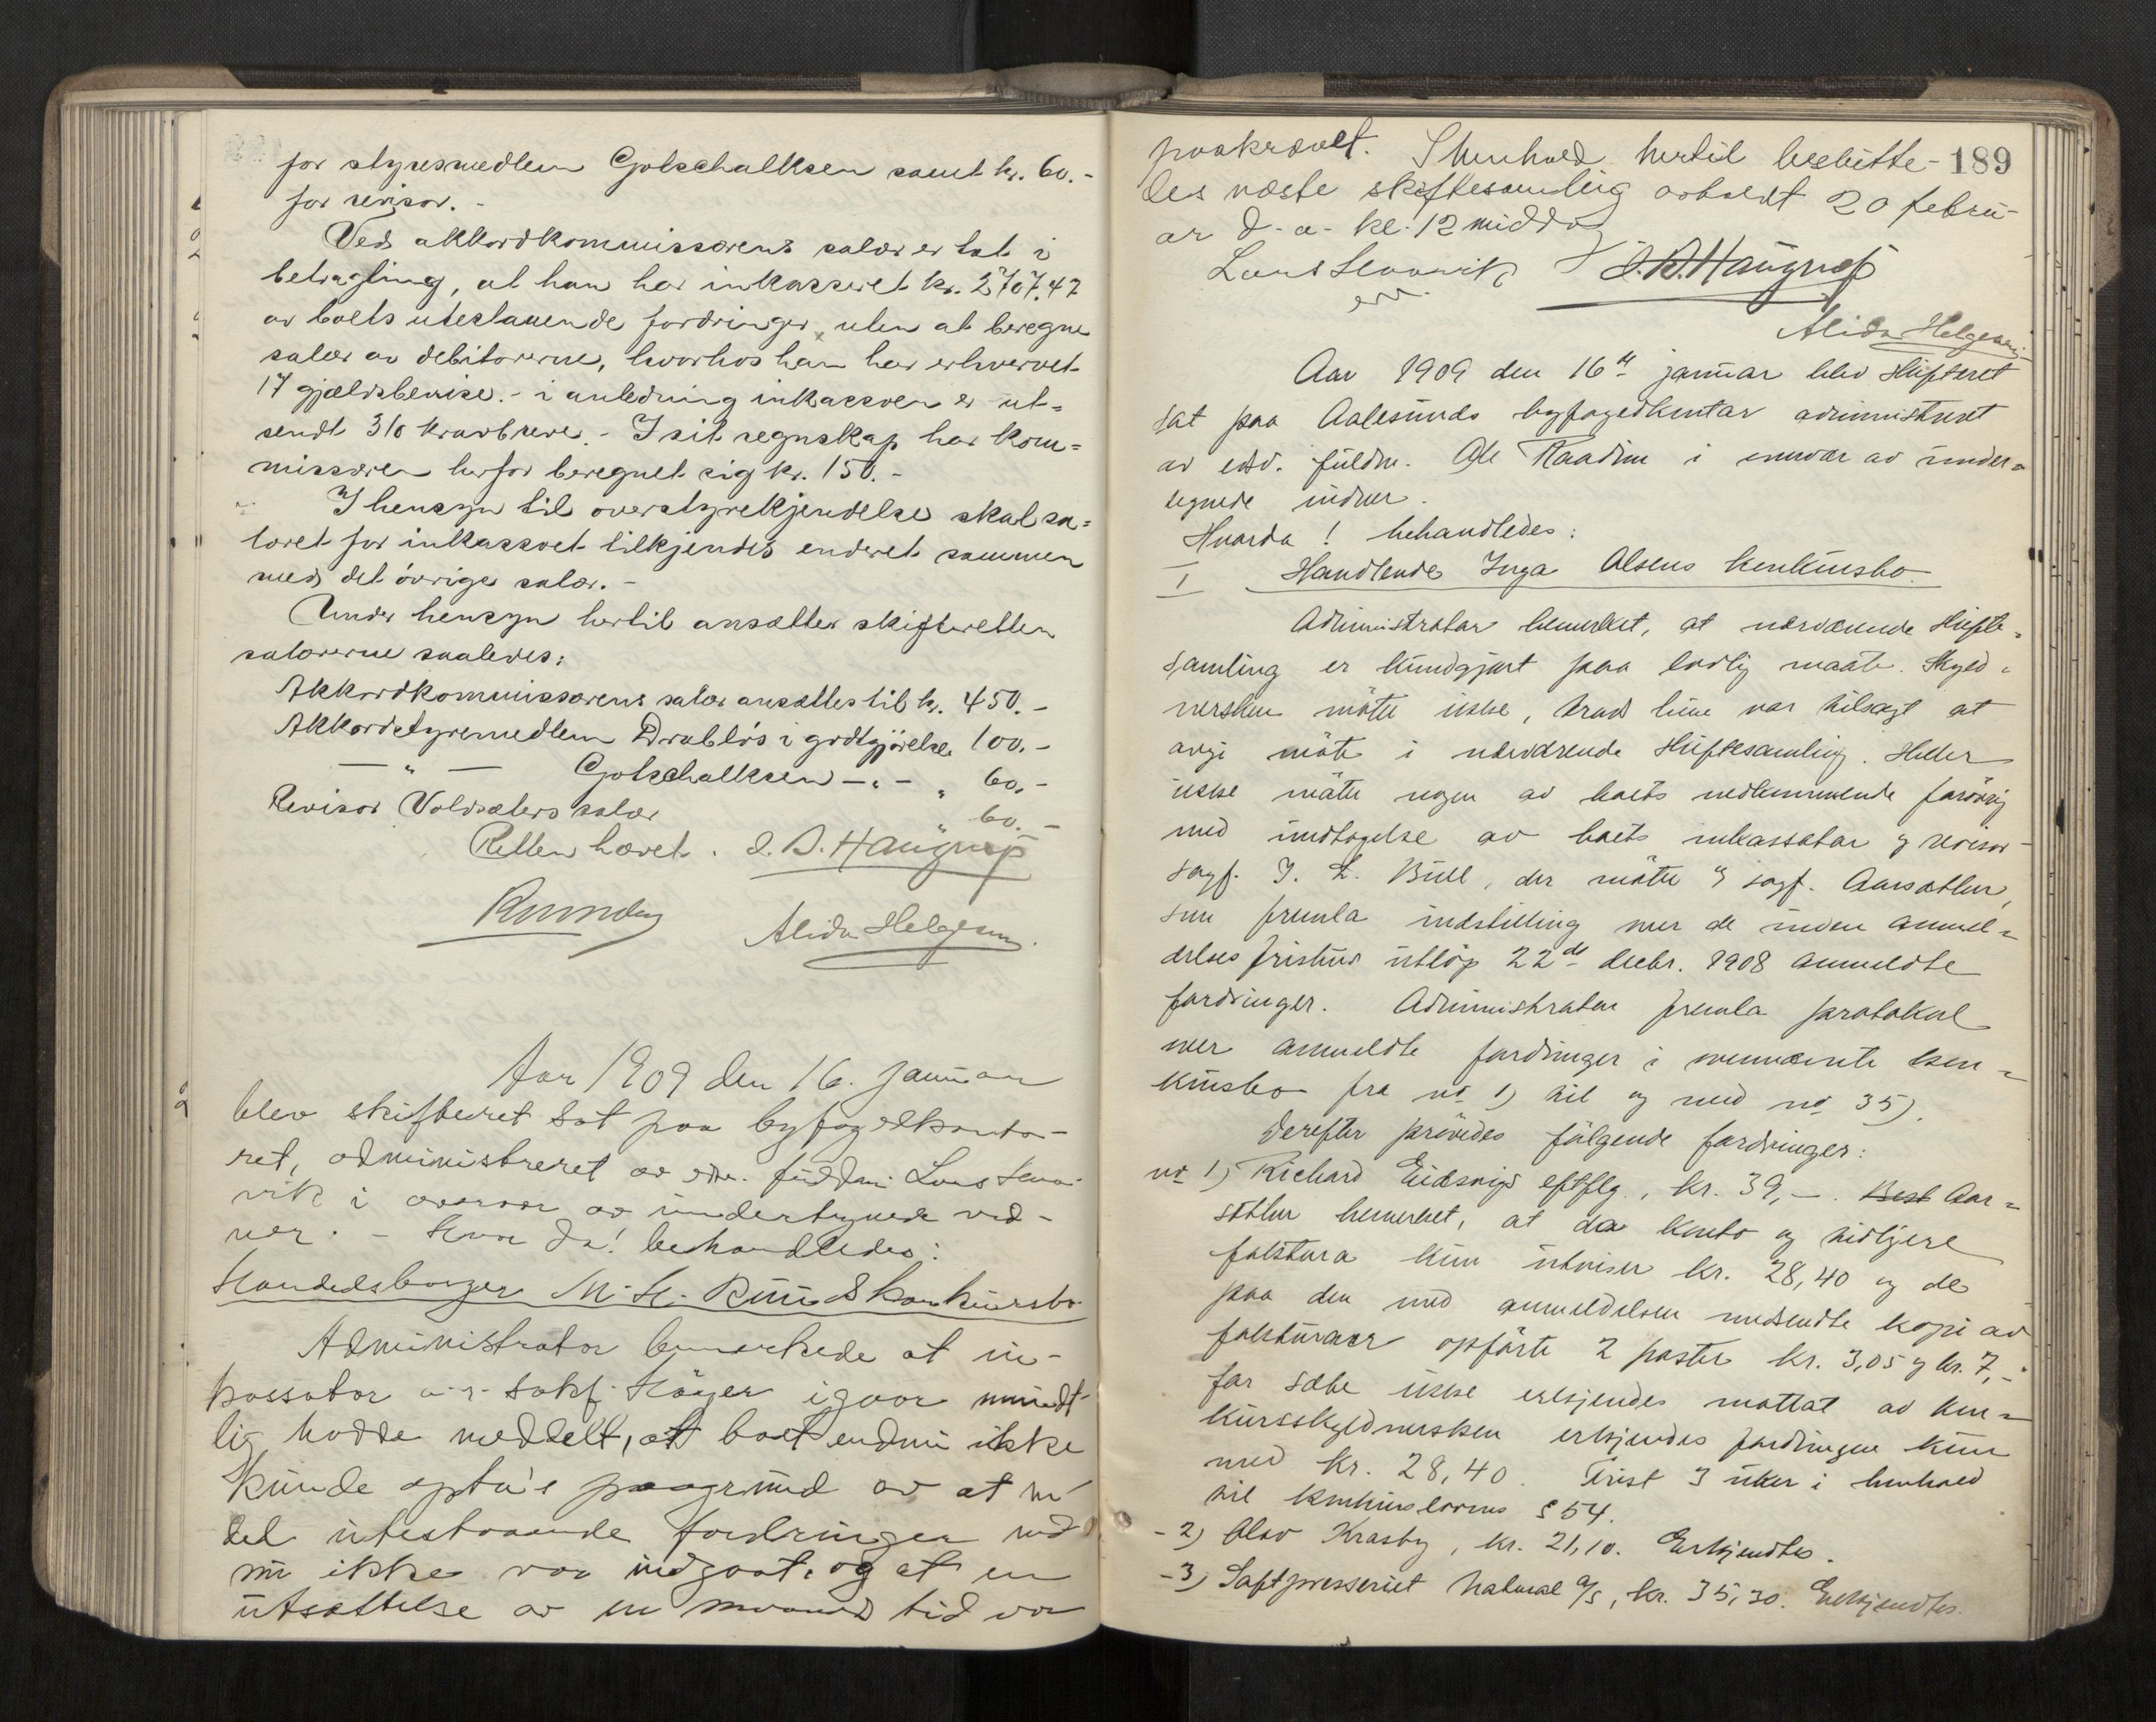 for styresmedlem Gotschalksen samt kr. 60.-
for revisor. -
Ved akkordkommissærens salær er tat i
betragtning, at han har inkasseret kr. 2707.47
av boets utestaaende fordringer, uten at beregne
salær av debitorerne, hvorhos han har erhvervet
17 gjældsbevise. - i anledning inkassoen er ut=
sendt 310 kravbreve. - I sit regnskap har kom=
missæren herfor beregnet sig kr. 150. -
I hensyn til overstyrekjendelse skal sa=
læret for inkassoet tilkjendes enderet sammen
med det övrige salær. -
Under hensyn hertil ansætter skifteretten
salærerne saaledes:
Akkordkommissærens salær ansættes til kr. 450. -
Akkordstyremedlem Drabløs i godtgjörelse 100. -
— " — Gotschalksen — " — " 60. -
Revisor Voldsæters salær " 60. -
Retten hævet. O. D. Haugnes
Alida Helgesen.
Aar 1909 den 16. januar
blev skifteret sat paa byfogedkonto-
ret, administreret av edv. fuldm. Lars Sten-
vik i overvær av undertegnede vid-
ner. - Hvor da! behandledes:
Handelsborger M. H. Ruuds konkursbo.
Administrator bemerkede at in-
kassator o.r. sakf. Höyer igaar mundt-
lig hadde meddelt, at boet endnu ikke
kunde opta's paagrund av at en
del utestaaende fordringer end
nu ikke var indgaat, og at en
utsættelse av en maaned tid var
189
paakrævet. I henhold hertil beslutte-
des næste skiftesamling avholdt 20 febru-
ar d. a. kl. 12 middag
Lars Stenvik O. D. Haugnes
Alida Helgesen
Aar 1909 den 16de januar blev skifteret
sat paa Aalesunds byfogedkontor administreret
av edsv. fuldm. Ole Raadim i overvær av under=
tegnede vidner.
Hvorda! behandledes:
I Handlende Inga Olsens konkursbo.
Administrator bemerket, at nærværende skifte=
samling er kundgjort paa lovlig maate. Skyld=
nersken mötte ikke, trods hun var tilsagt at
avgi möte i nærværende skiftesamling. Heller
ikke mötte nogen av boets vedkommende forövrig
med undtagelse av boets inkassator og revisor
sagf. J. L. Bull, der mötte og sagf. Aarsæther,
som fremla indstilling over de inden anmel=
delsesfristens utlöp 22de decbr. 1908 anmeldte
fordringer. Administrator fremla protokol
over anmeldte fordringer i ovennævnte kon=
kursbo fra no 1) til og med no 35).
Derefter prövedes fölgende fordringer:
no 1) Richard Eidsvigs eftflg., kr. 39,—. Best Aar=
sæther bemerket, at da konto og tidligere
faktura kun utviser kr. 28,40 og de
paa den med anmeldelsen medsendte kopi av
fakturaer opförte 2 poster kr. 3,05 og kr. 7,-
for sæbe ikke erkjendes mottat av kon=
kursskyldnersken erkjendes fordringen kun
med kr. 28,40. Frist 3 uker i henhold
til konkurslovens § 54.
- 2) Olav Krasby, kr. 21,10. Erkjendtes.
- 3) Saftpresseriet Natural A/S, kr. 35,30. Erkjendtes.